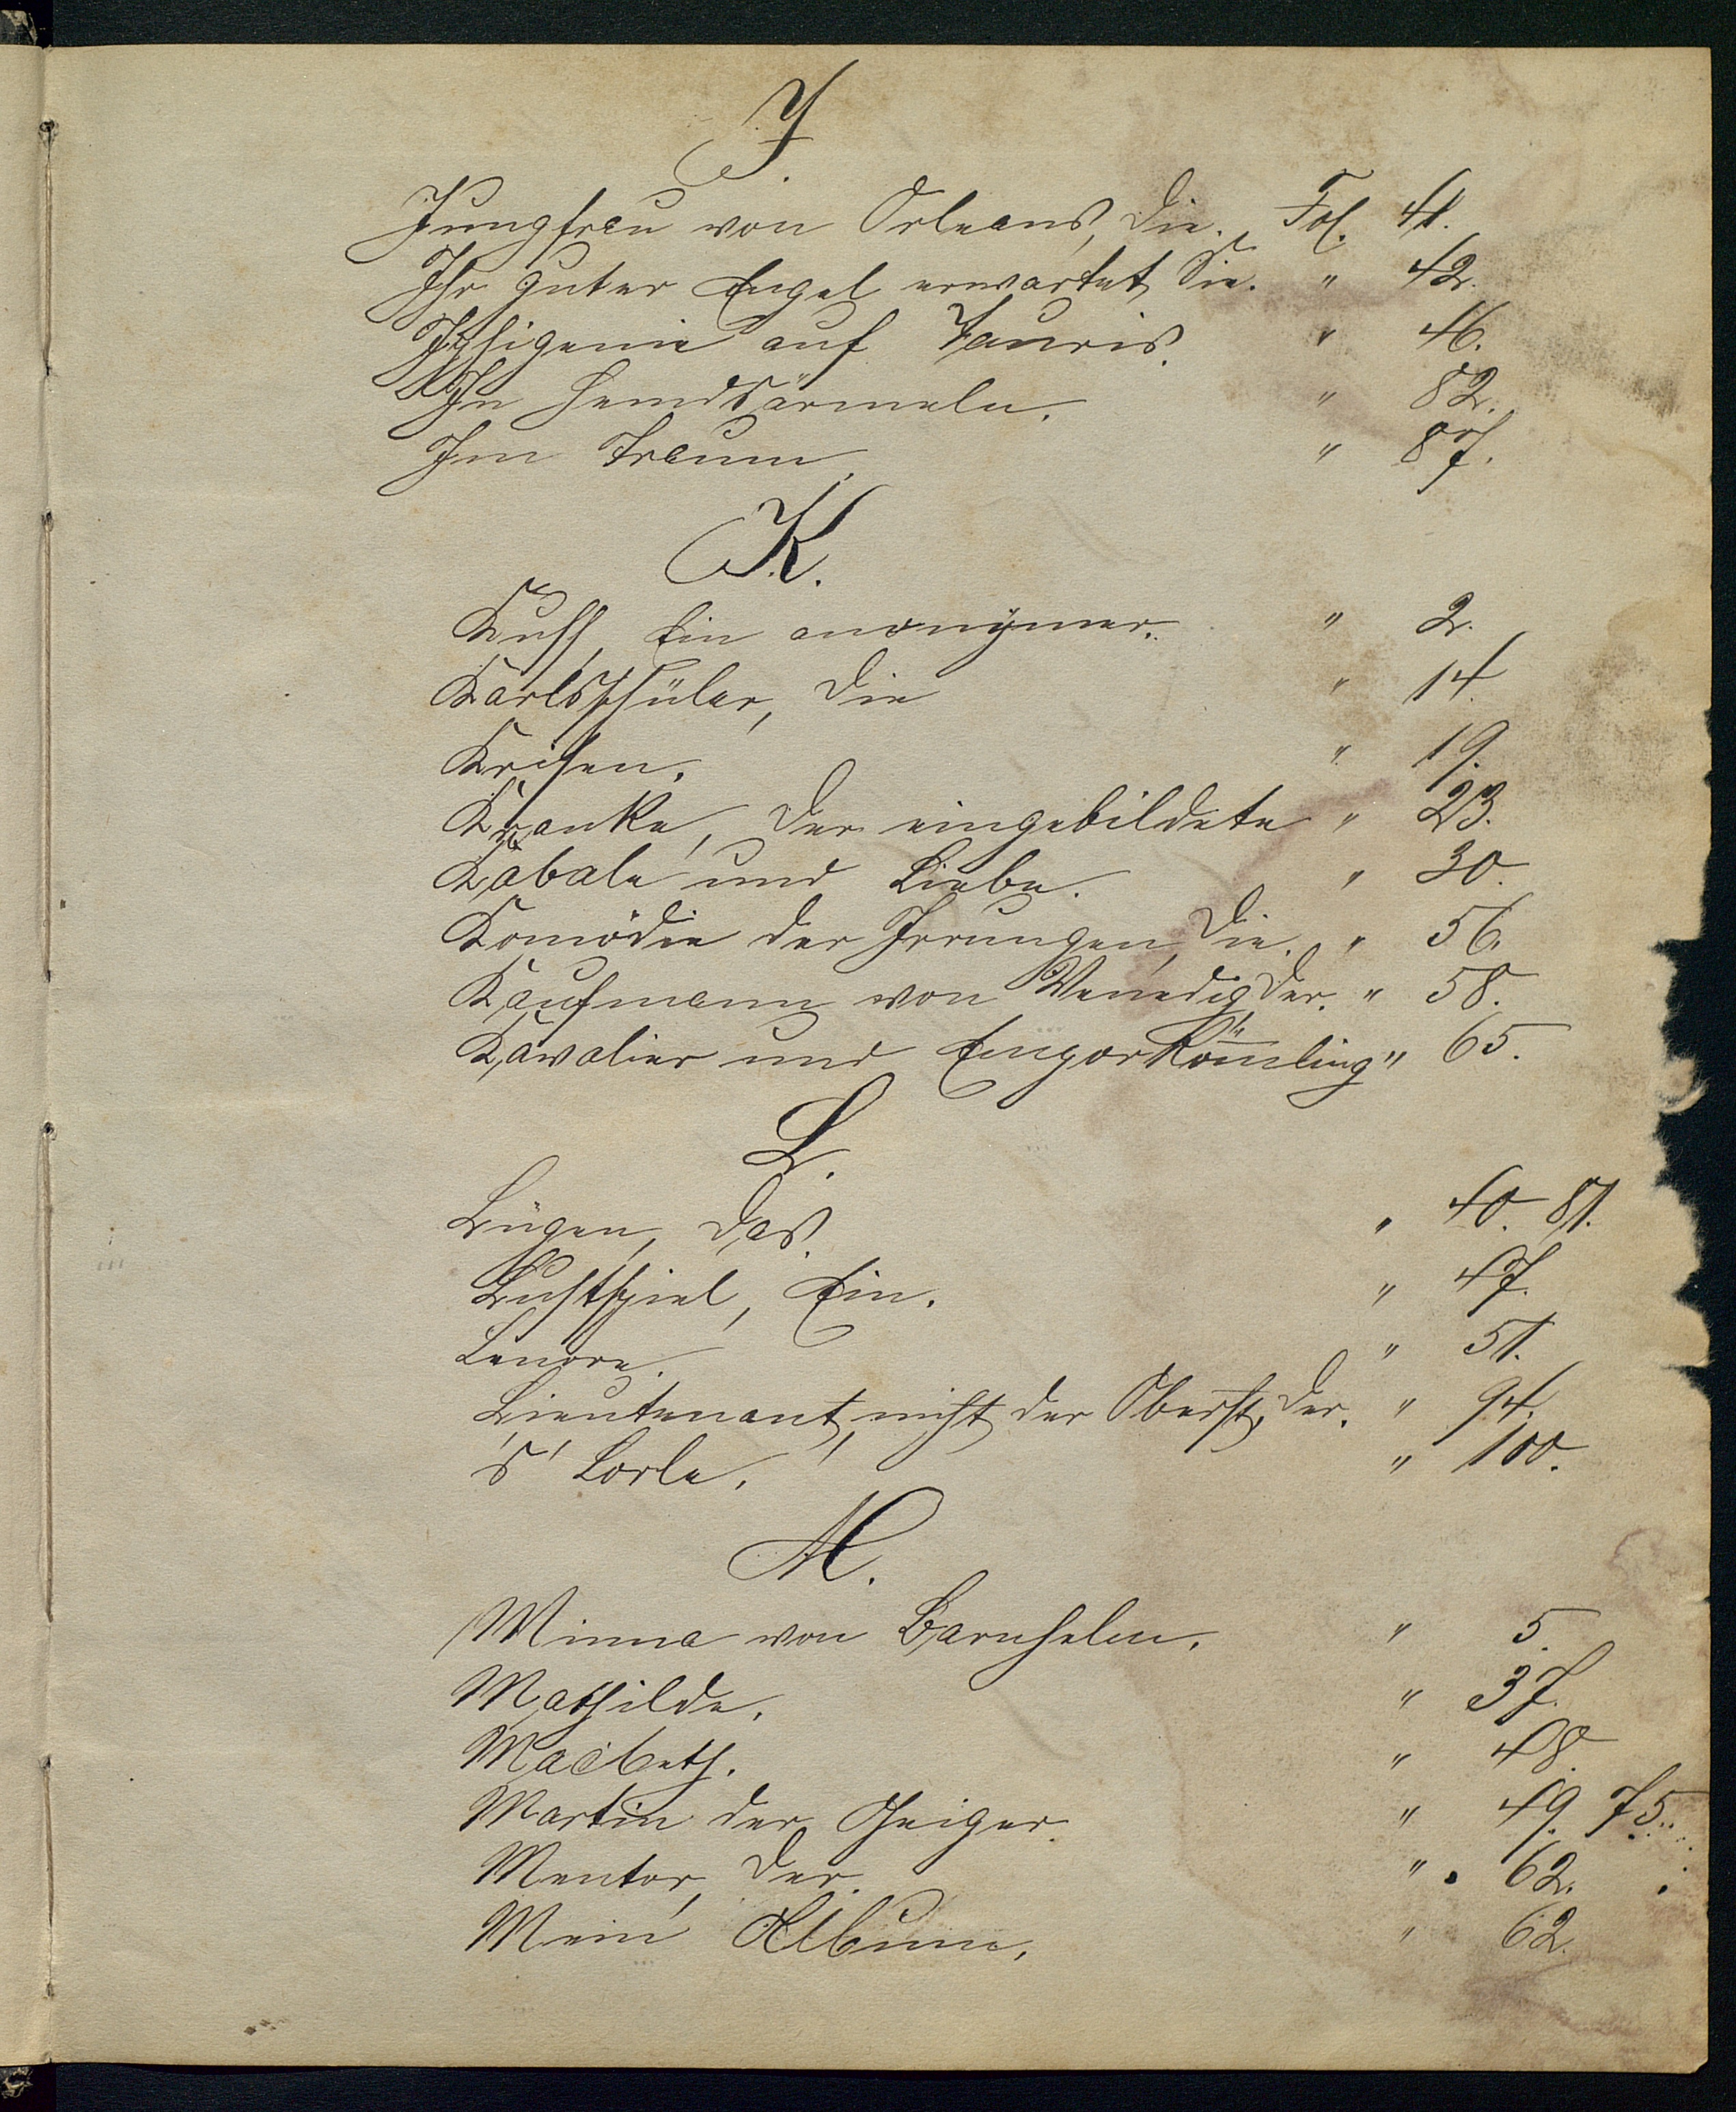 J.
Jungfrau von Orleans, die. Fol. 41.
Ihr guter Engel erwartet Sie. " 42.
Iphigenie auf Tauris. " 46.
In Hemdsärmeln. " 82.
Im Traum. " 87.
K.
Kuss, Ein anonÿmer. " 2.
Karlsschüler, die " 14.
Krisen. " 19.
Kranke, der eingebildete " 23.
Kabale und Liebe. " 30.
Komödie der Irrungen, die. " 56.
Kaufmann von Venedig, der. " 58.
Kavalier und Emporköm̅ling " 65.
L.
Lügen, das. " 40. 81.
Lustspiel, Ein. " 47.
Lenore. " 51.
Lieutenant, nicht der Oberst, der. " 94.
's Lorle. " 100.
M.
Minna von Barnhelm. " 5.
Mathilde. " 37.
Macbeth. " 48.
Martin der Geiger. " 49. 75.
Mentor, der. " 62.
Mein Album. " 62.